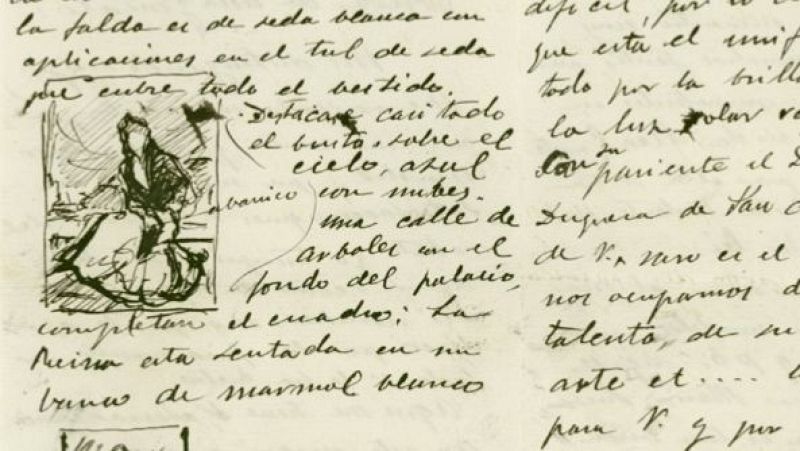 la falda es de seda blanca con
aplicaciones en el tul de seda
que cubre todo el vestido.
Destácase casi todo
el busto, sobre el
cielo, azul
abanico
con nubes.
una calle de
arboles con el
fondo del palacio,
completan el cuadro; La
Reina esta sentada en un
banco de marmol blanco
dificil, por
que esta el unif
todo por la brilla
la luz solar
Con su pariente el D
Duquesa de San C
de V. raro es el
nos ocupamos d
talento, de su
arte et....
para V. y por